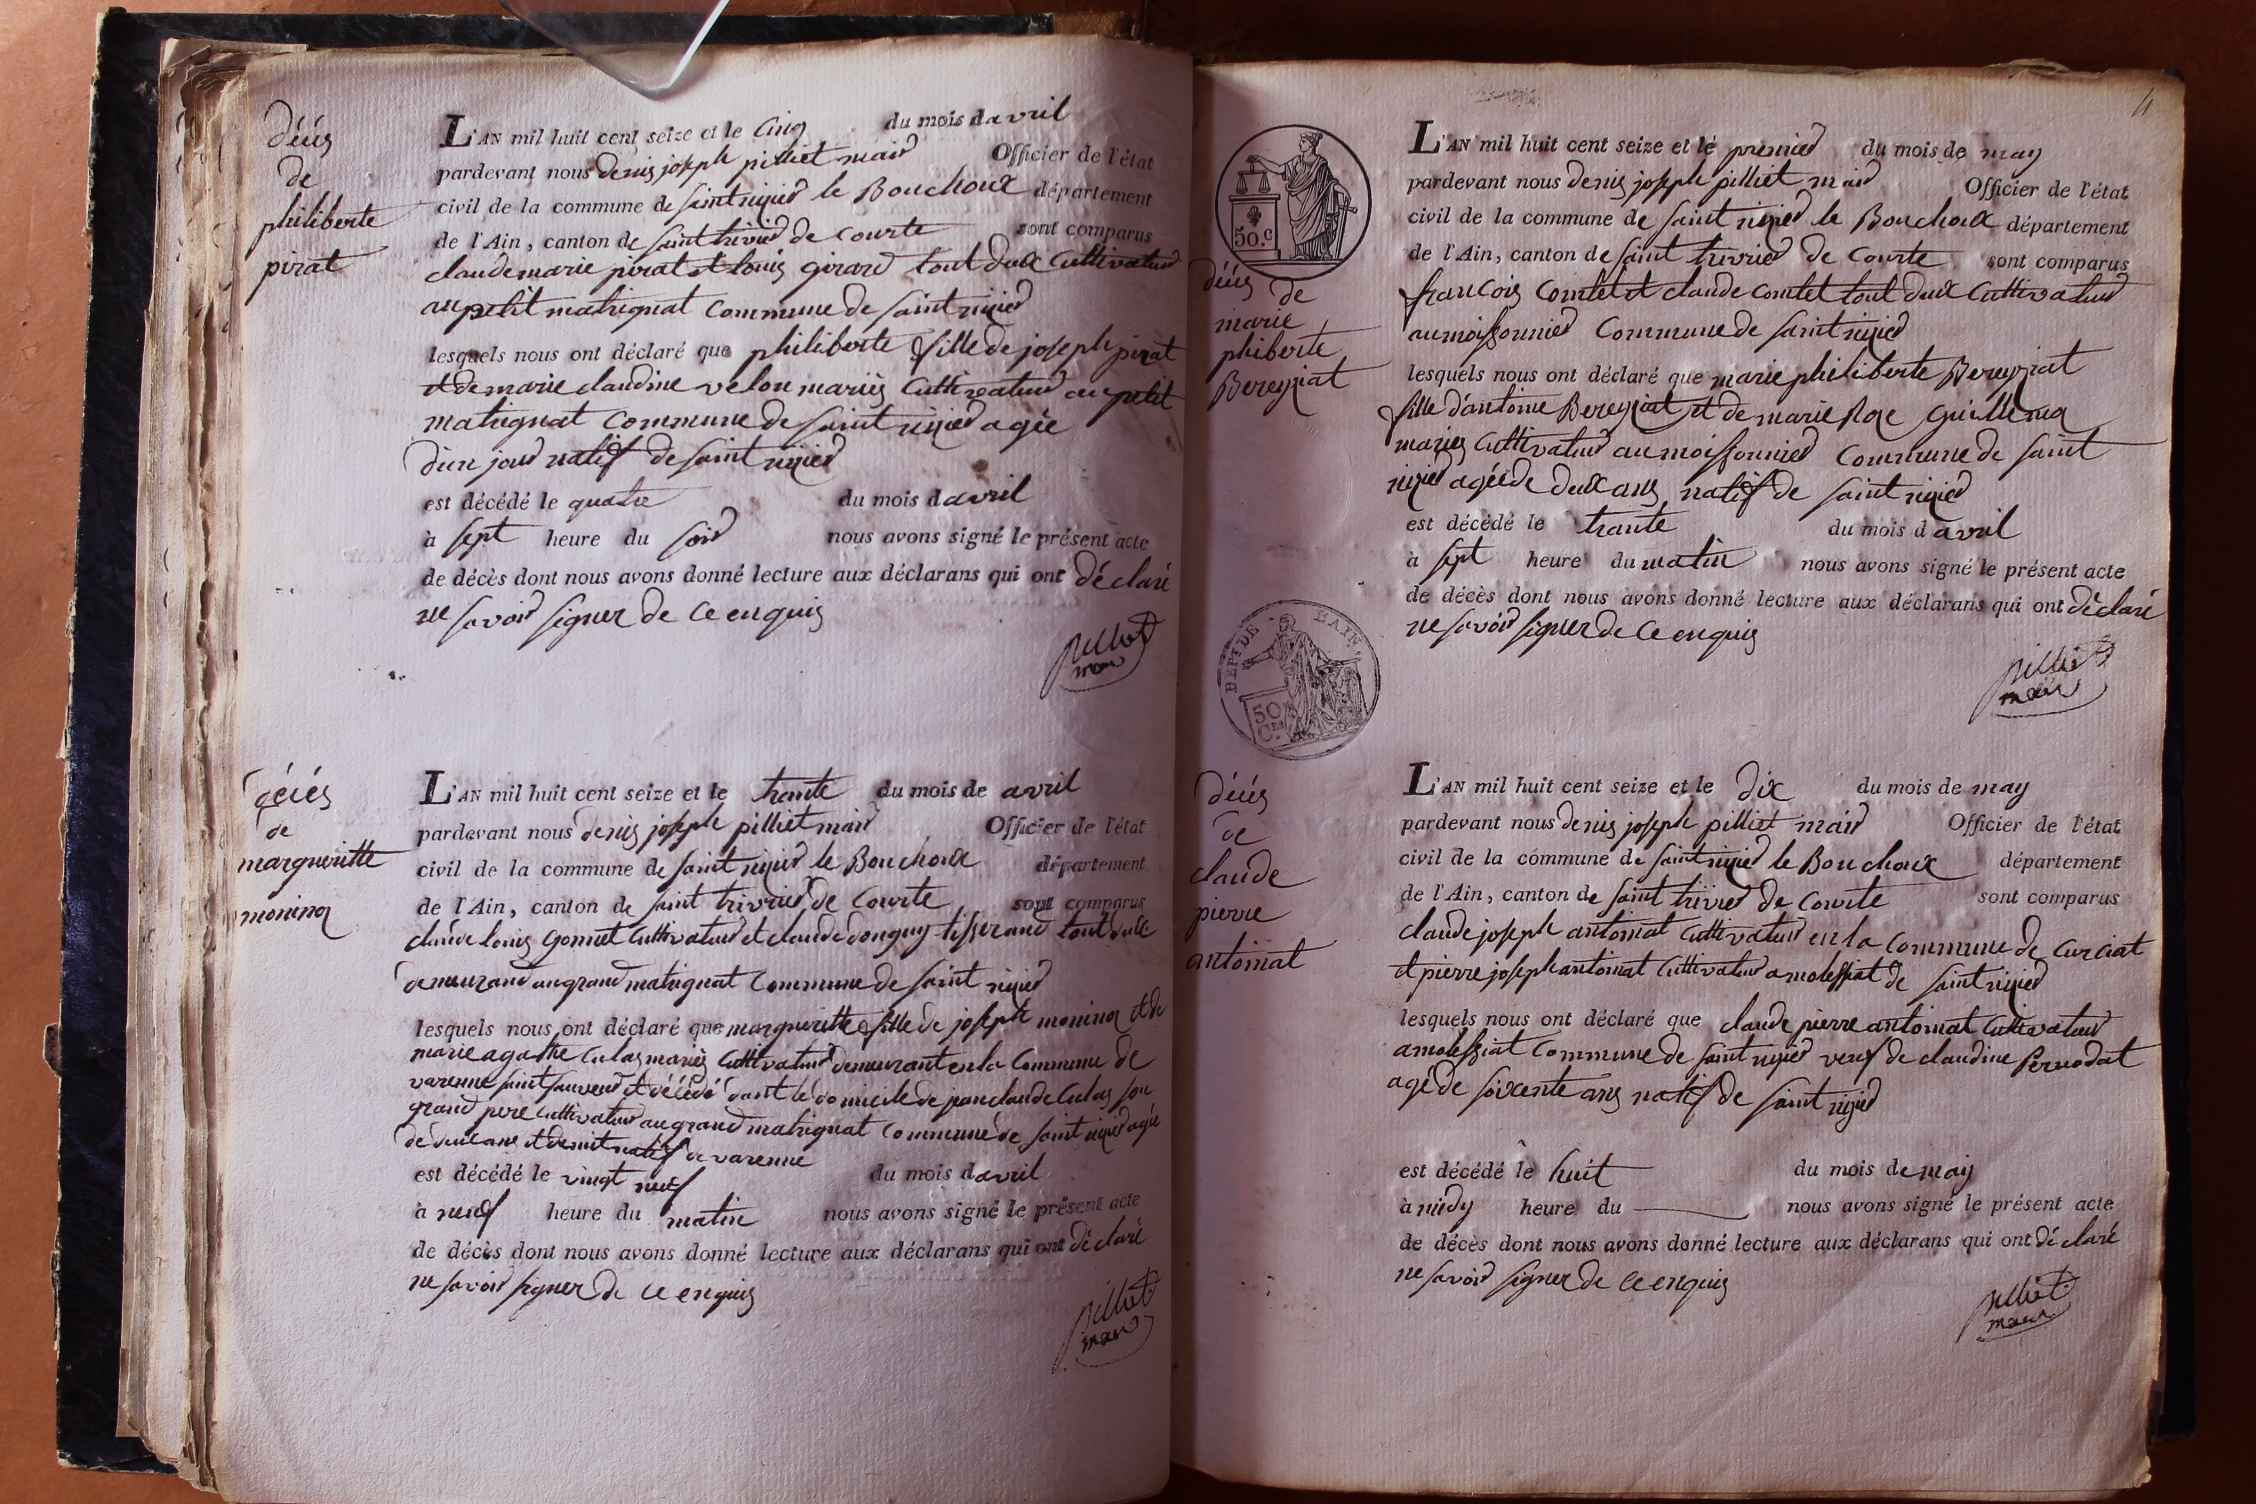 décés
de
philiberte
pirat
L'AN mil huit cent seize et le cinq du mois d avril
pardevant nous denis joseph pilliet maire Officier de l'état
civil de la commune de saint nizier le Bouchoux département
de l'Ain, canton de saint trivier de courte sont comparus
claude marie pirat et louis girard tout deux cultivateur
au petit matrignat commune de saint nizier
lesquels nous ont déclaré que philiberte fille de joseph pirat
et de marie claudine velon mariés cultivateur au petit
matrignat commune de saint nizier agée
d'un jour natif de saint nizier
est décédé le quatre du mois d avril
à sept heure du soir nous avons signé le présent acte
de décès dont nous avons donné lecture aux déclarans qui ont déclaré
ne savoir signer de ce enquis
pilliet
maire
décés
de
margueritte
moninq
L'AN mil huit cent seize et le trante du mois de avril
pardevant nous denis joseph pilliet maire Officier de l'état
civil de la commune de saint nizier le Bouchoux département
de l'Ain, canton de saint trivier de courte sont comparus
claude louis gonnet cultivateur et claude donguy tisserand tout deux
demeurand au grand matrignat commune de saint nizier
lesquels nous ont déclaré que margueritte fille de joseph moninq et de
marie agathe culas mariés cultivateur demeurant en la commune de
varenne saint sauveur et décédé dant le domicile de jean claude culas son
grand pere cultivateur au grand matrignat commune de saint nizier agée
de deux ans et demit natif de varenne
est décédé le vingt neuf du mois d avril
à neuf heure du matin nous avons signé le présent acte
de décès dont nous avons donné lecture aux déclarans qui ont déclaré
ne savoir signer de ce enquis
pilliet
maire
4
50.c
décés de
marie
phiberte
Bereyziat
L'AN mil huit cent seize et le premier du mois de may
pardevant nous denis joseph pilliet maire Officier de l'état
civil de la commune de saint nizier le Bouchoux département
de l'Ain, canton de saint trivrier de courte sont comparus
francois comtet et claude comtet tout deux cultivateur
au moissonnier commune de saint nizier
lesquels nous ont déclaré que marie philiberte Bereyziat
fille d'antoine Bereyziat et de marie Roze guillemaq
mariés cultivateur au moissonnier commune de saint
nizier agée de deux ans natif de saint nizier
est décédé le trante du mois d avril
à sept heure du matin nous avons signé le présent acte
de décès dont nous avons donné lecture aux déclarans qui ont déclaré
ne savoir signer de ce enquis
pilliet
maire
DEPT. DE L'AIN
50
C.es
décés
de
claude
pierre
antoinat
L'AN mil huit cent seize et le dix du mois de may
pardevant nous denis joseph pilliet maire Officier de l'état
civil de la commune de saint nizier le Bouchoux département
de l'Ain, canton de saint trivier de courte sont comparus
claude joseph antoinat cultivateur en la commune de curciat
et pierre joseph antoinat cultivateur a molessiat de saint nizier
lesquels nous ont déclaré que claude pierre antoinat cultivateur
a molessiat commune de saint nizier veuf de claudine pernodat
agé de soixente ans natif de saint nizier
est décédé le huit du mois de may
à midy heure du nous avons signé le présent acte
de décès dont nous avons donné lecture aux déclarans qui ont déclaré
ne savoir signer de ce enquis
pilliet
maire